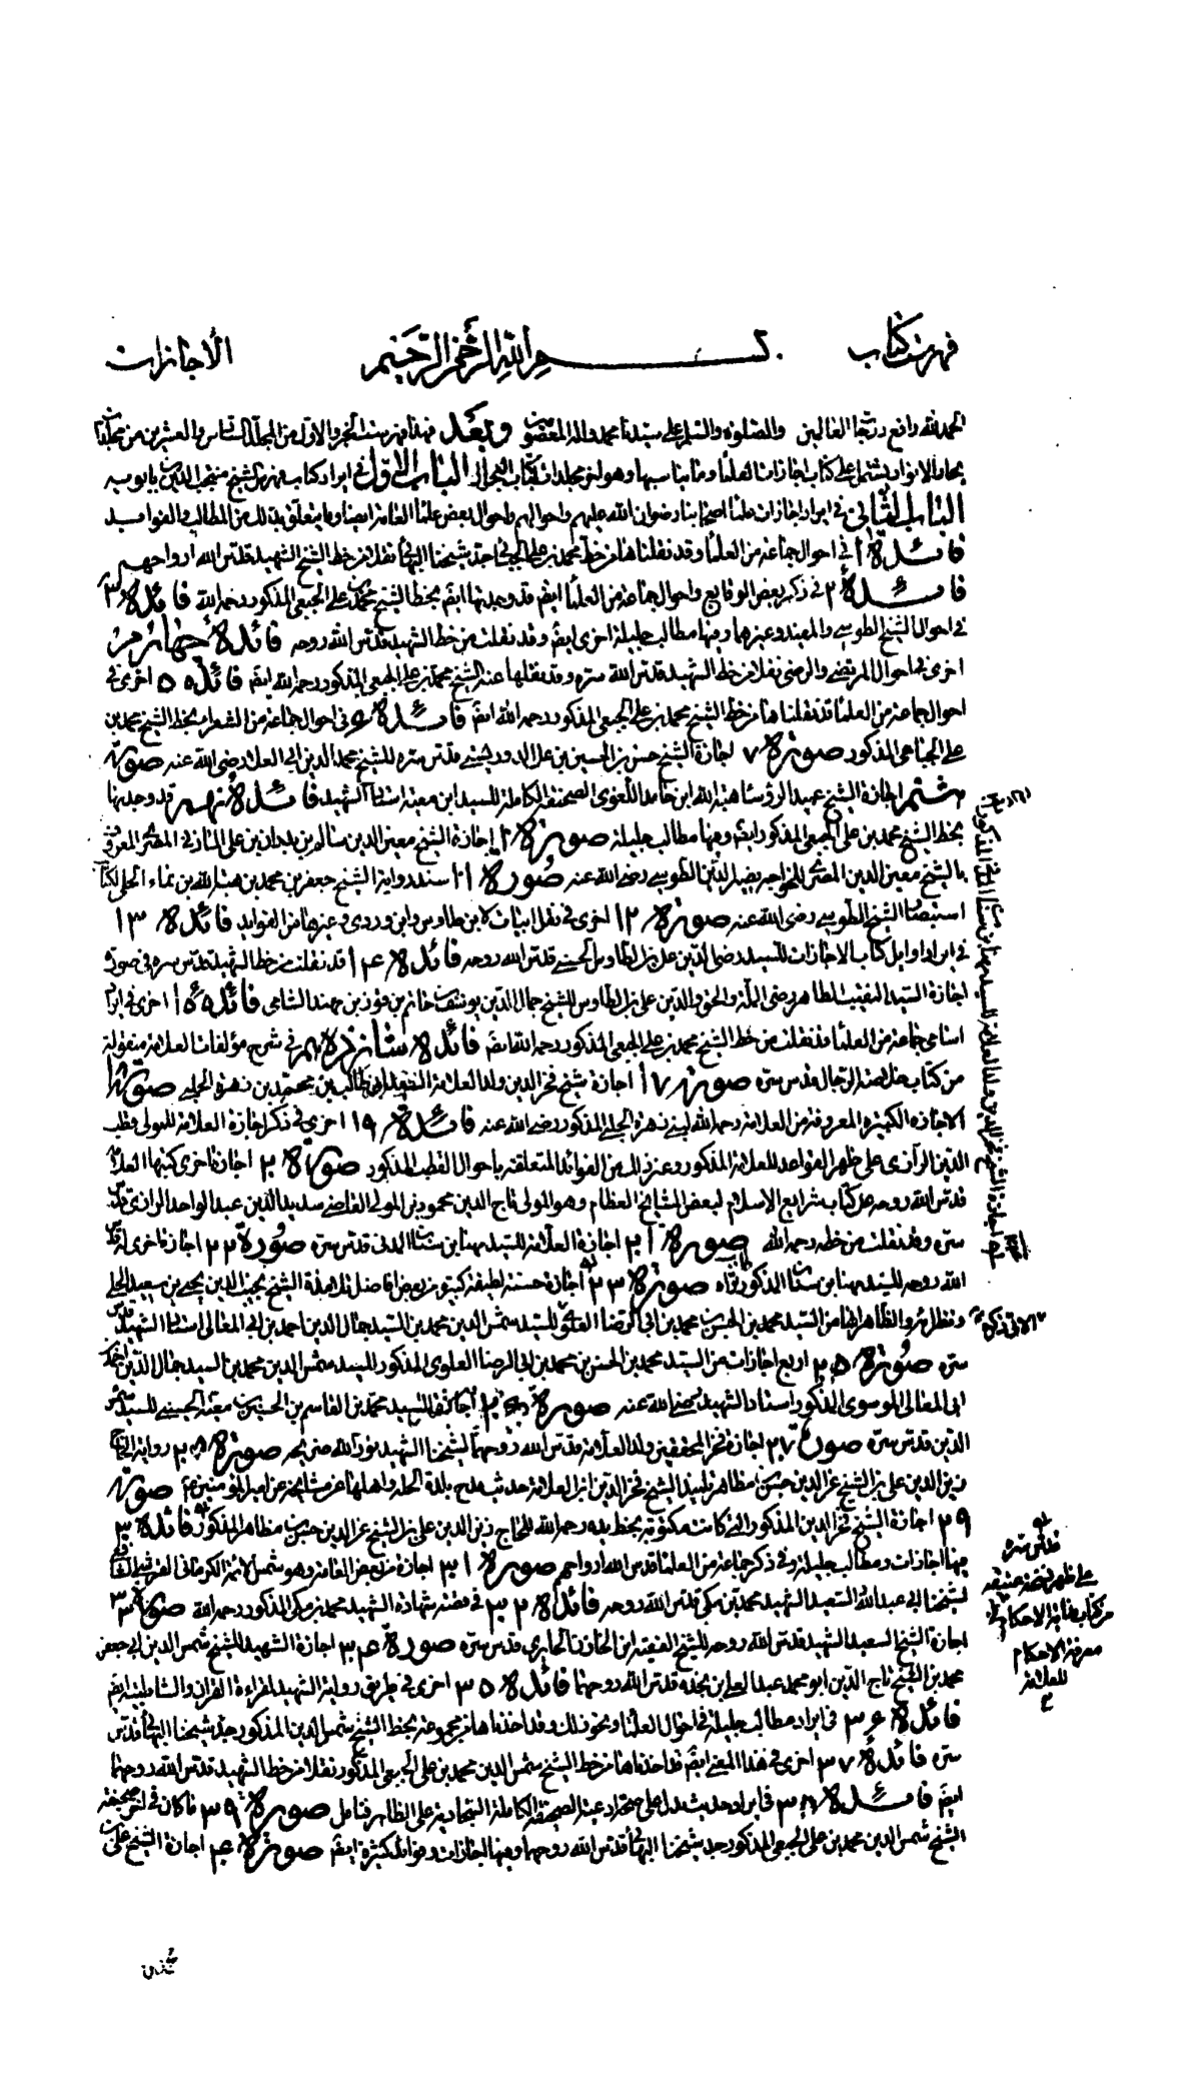 فهرست كتاب بسم الله الرحمن الرحيم الأجازات
الحمد لله رافع درجات العالمين والصلوة والسلم على سيدنا محمد واله المعصومين وبعد فهذا فهرست الجزء الاول من المجلد السادس والعشرين من مجلدات
بحار الانوار يشتمل على كتاب اجازات العلماء وما يناسبها وهو اخر مجلدات كتاب البحار الباب الاول في ايراد كتاب فهرس الشيخ منتجب الدين بن بابويه
الباب الثاني في ايراد اجازات علماء اصحابنا رضوان الله عليهم واحوالهم واحوال بعض علماء العامة ايضا وما يتعلق بذلك من المطالب والفوايد
فائدة ١ في احوال جماعة من العلماء وقد نقلناها من خط محمد بن علي الجبعي جد شيخنا البهائي نقلا من خط الشيخ الشهيد قدس الله ارواحهم
فائدة ٢ في ذكر بعض الوقايع واحوال جماعة من العلماء ايضم قد وجدتها ايضم بخط الشيخ محمد بن علي الجبعي المذكور رحمه الله فائدة ٣
في احوال الشيخ الطوسي والمفيد وغيرهما وفيها مطالب جليلة اخرى ايضم وقد نقلت من خط الشهيد قدس الله روحه فائدة چهارم
اخرى في احوال المرتضى والرضي نقلا من خط الشهيد قدس الله سره وقد نقلها عنه الشيخ محمد بن علي الجبعي المذكور رحمه الله ايضم فائدة ٥ اخرى في
احوال جماعة من العلماء قد نقلناها من خط الشيخ محمد بن علي الجبعي المذكور رحمه الله ايضم فائدة ٦ في احوال جماعة من الشعراء بخط الشيخ محمد بن
علي الجباعي المذكور صورة ٧ اجازة الشيخ حسن بن الحسين بن علي الدوريستي قدس سره للشيخ مجد الدين ابي العلاء رضي الله عنه صورة
هشتم اجازة الشيخ عميد الرؤساء هبة الله ابن حامد اللغوى الصحيفة الكاملة للسيد ابن معية استاد الشهيد فائدة نهم قد وجدتها
بخط الشيخ محمد بن علي الجبعي المذكور ايضم وفيها مطالب جليلة صورة ١٠ اجازة الشيخ معين الدين سالم بن بدران بن علي المازني المصري المعروف
بالشيخ معين الدين المصري للخواجه نصير الدين الطوسي رضي الله عنه صورة ١١ سند رواية الشيخ جعفر بن محمد بن هبة الله بن نماء الحلي لكتاب
استبصار الشيخ الطوسي رضي الله عنه صورة ١٢ اخرى في نقل ابيات لابن طاوس وابن وردي وغيرها من الفوايد فائدة ١٣
في ايراد اوايل كتاب الاجازات للسيد رضي الدين علي بن الطاوس الحسني قدس الله روحه فائدة ١٤ قد نقلت من خط الشهيد قدس سره في صورة
اجازة السيد النقيب الطاهر رضي الملة والحق والدين علي بن الطاوس للشيخ جمال الدين يوسف بن حاتم بن فوز بن مهند الشامي فائدة ١٥ اخرى في ايراد
اسامي جماعة من العلماء قد نقلت من خط الشيخ محمد بن علي الجبعي المذكور رحمه الله ايضم فائدة شانزدهم في شرح مؤلفات العلامة منقولة
من كتاب خلاصة الرجال قدس سره صورة ١٧ اجازة شيخ فخر الدين ولد العلامة للسيد ابي طالب بن محمد بن زهرة الحلبي صورة ١٨
الاجازة الكبيرة المعروفة من العلامة رحمه الله لبني زهرة الحلبي المذكور رضي الله عنه فائدة ١٩ اخرى في ذكر اجازة العلامة للمولى قطب
الدين الرازي على ظهر القواعد للعلامة المذكور وغير ذلك من الفوائد المتعلقة باحوال القطب المذكور صورة ٢٠ اجازة اخرى كتبها العلامة
قدس الله روحه على كتاب شرايع الاسلام لبعض المشايخ العظام وهو المولى تاج الدين محمود بن المولى القاضي سديد الدين عبد الواحد الرازي قدس
سره وقد نقلت من خطه رحمه الله صورة ٢١ اجازة العلامة للسيد مهنا بن سنان المدني قدس سره صورة ٢٢ اجازة اخرى له قدس
الله روحه للسيد مهنا ابن سنان المذكور ثراه صورة ٢٣ اجازة حسنة لطيفة كبيرة من بعض افاضل تلامذة الشيخ نجيب الدين يحيى بن سعيد الحلي
ونظرائه والظاهر انها من السيد محمد بن الحسن بن محمد بن ابي الرضا العلوي للسيد شمس الدين محمد بن السيد جمال الدين احمد بن ابي المعالي استاد الشهيد قدس
سره صورة ٢٥ اربع اجازات من السيد محمد بن الحسن بن محمد بن ابي الرضا العلوي المذكور للسيد شمس الدين محمد بن السيد جمال الدين احمد
ابي المعالي الموسوي المذكور استاد الشهيد رضي الله عنه صورة ٢٦ اجازة السيد محمد بن القاسم بن الحسين بن معية الحسني للسيد شمس
الدين قدس سره صورة ٢٧ اجازة فخر المحققين ولد العلامة قدس الله روحهما لشيخنا الشهيد نور الله ضريحه صورة ٢٨ رواية الحاج
زين الدين علي بن الشيخ عز الدين حسن بن مظاهر تلميذ الشيخ فخر الدين ابن العلامة حديث مدح بلدة الحلة واهلها عن مشايخه عن امير المؤمنين ع صورة
٢٩ اجازة الشيخ فخر الدين المذكور التي كانت مكتوبة بخط يده رحمه الله للحاج زين الدين علي بن الشيخ عز الدين حسن بن مظاهر المذكور فائدة ٣٠
فيها اجازات ومطالب جليلة وفي ذكر جماعة من العلماء قدس الله ارواحهم صورة ٣١ اجازة من بعض العامة وهو شمس الائمة الكرماني القرشي الشافعي
لشيخنا ابي عبد الله السعيد الشهيد محمد بن مكي قدس الله روحه فائدة ٣٢ في قصة شهادة الشهيد محمد بن مكي المذكور رحمه الله صورة ٣٣
اجازة الشيخ السعيد الشهيد قدس الله روحه للشيخ الفقيه ابن الخازن الحايري قدس سره صورة ٣٤ اجازة الشهيد للشيخ شمس الدين ابي جعفر
محمد بن الشيخ تاج الدين ابو محمد عبد العلي ابن نجدة قدس الله روحهما فائدة ٣٥ اخرى في طريق رواية الشهيد لقراءة القران والشاطبية ايضم
فائدة ٣٦ في ايراد مطالب جليلة في احوال العلماء ونحو ذلك وقد اخذناها من مجموعة بخط الشيخ شمس الدين المذكور جد شيخنا البهائي قدس
سره فائدة ٣٧ اخرى في هذا المعنى ايضم قد اخذناها من خط الشيخ شمس الدين محمد بن علي الجبعي المذكور نقلا من خط الشهيد قدس الله روحهما
ايضم فائدة ٣٨ في ايراد حديث يدل على صحة ادعية الصحيفة الكاملة السجادية على الظاهر فتامل صورة ٣٩ ما كان في اخر صحيفة
الشيخ شمس الدين محمد بن علي الجبعي المذكور جد شيخنا البهائي قدس الله روحهما وفيها اجازات وفوائد كثيرة ايضم صورة ٤٠ اجازة الشيخ علي بن
الاتي ذكره
قدس سره
على ظهر نسخة عتيقة
من كتاب نهاية الاحكام في
معرفة الاحكام
للعلامة